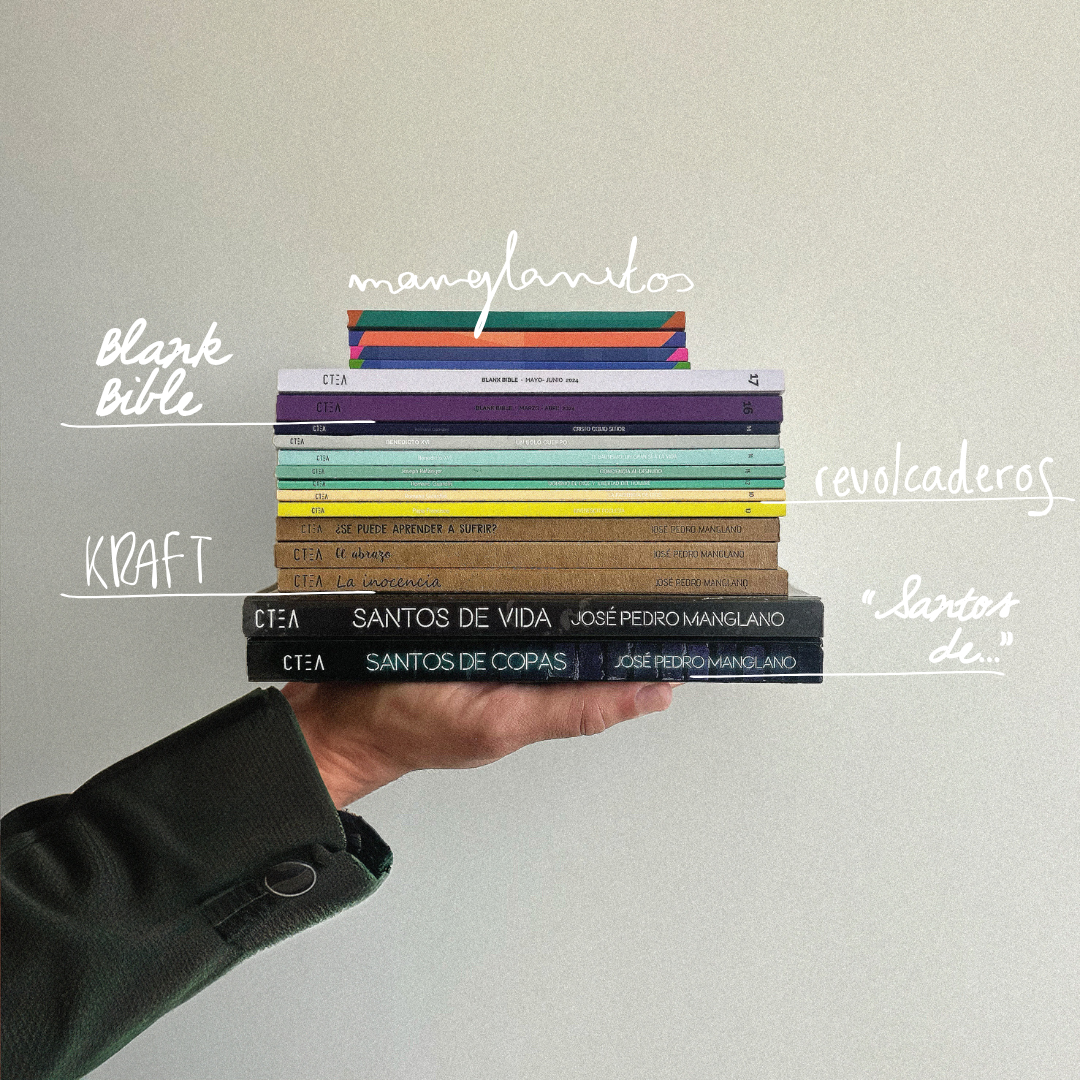 manglanitos
Blank
Bible
CTEA BLANK BIBLE - MAYO- JUNIO 2024 17
CTEA BLANK BIBLE - MARZO - ABRIL 2024 16
CTEA CRISTO COMO SEÑOR
CTEA BENEDICTO XVI UN SOLO CUERPO
CTEA
CTEA
CTEA
CTEA
CTEA
revolcaderos
KRAFT
CTEA ¿SE PUEDE APRENDER A SUFRIR? JOSÉ PEDRO MANGLANO
CTEA El abrazo JOSÉ PEDRO MANGLANO
CTEA La inocencia JOSÉ PEDRO MANGLANO
"Santos
de..."
CTEA SANTOS DE VIDA JOSÉ PEDRO MANGLANO
CTEA SANTOS DE COPAS JOSÉ PEDRO MANGLANO